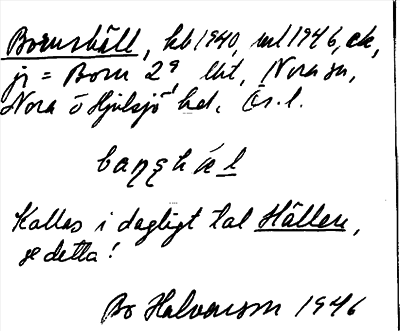 Bornshäll, kb 1940, ml 1946, ek,
ji = Born 2º lht, Nora sn,
Nora o Hjulsjö hd, Ös.l.
baŋʂhɛ̀l
Kallas i dagligt tal Hällen,
se detta!
Bo Halvarson 1946